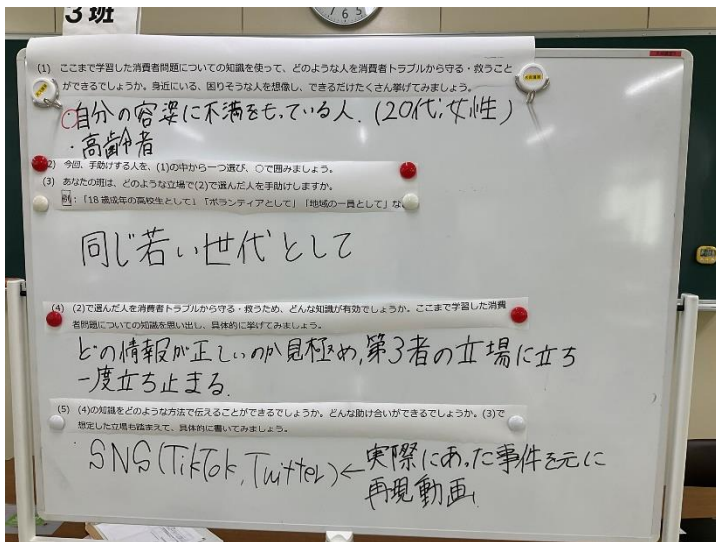 3班
(1) ここまで学習した消費者問題についての知識を使って、どのような人を消費者トラブルから守る・救うこと
ができるでしょうか。身近にいる、困りそうな人を想像し、できるだけたくさん挙げてみましょう。
自分の容姿に不満をもっている人.(20代,女性)
・高齢者
2) 今回、手助けする人を、(1)の中から一つ選び、○で囲みましょう。
(3) あなたの班は、どのような立場で(2)で選んだ人を手助けしますか。
例:「18歳成年の高校生として」「ボランティアとして」「地域の一員として」な
同じ若い世代として
(4) (2)で選んだ人を消費者トラブルから守る・救うため、どんな知識が有効でしょうか。ここまで学習した消費
者問題についての知識を思い出し、具体的に挙げてみましょう。
どの情報が正しいのか見極め,第3者の立場に立ち
一度立ち止まる.
(5) (4)の知識をどのような方法で伝えることができるでしょうか。どんな助け合いができるでしょうか。(3)で
想定した立場も踏まえて、具体的に書いてみましょう。
SNS(TikTok,Twitter)←実際にあった事件を元に
再現動画